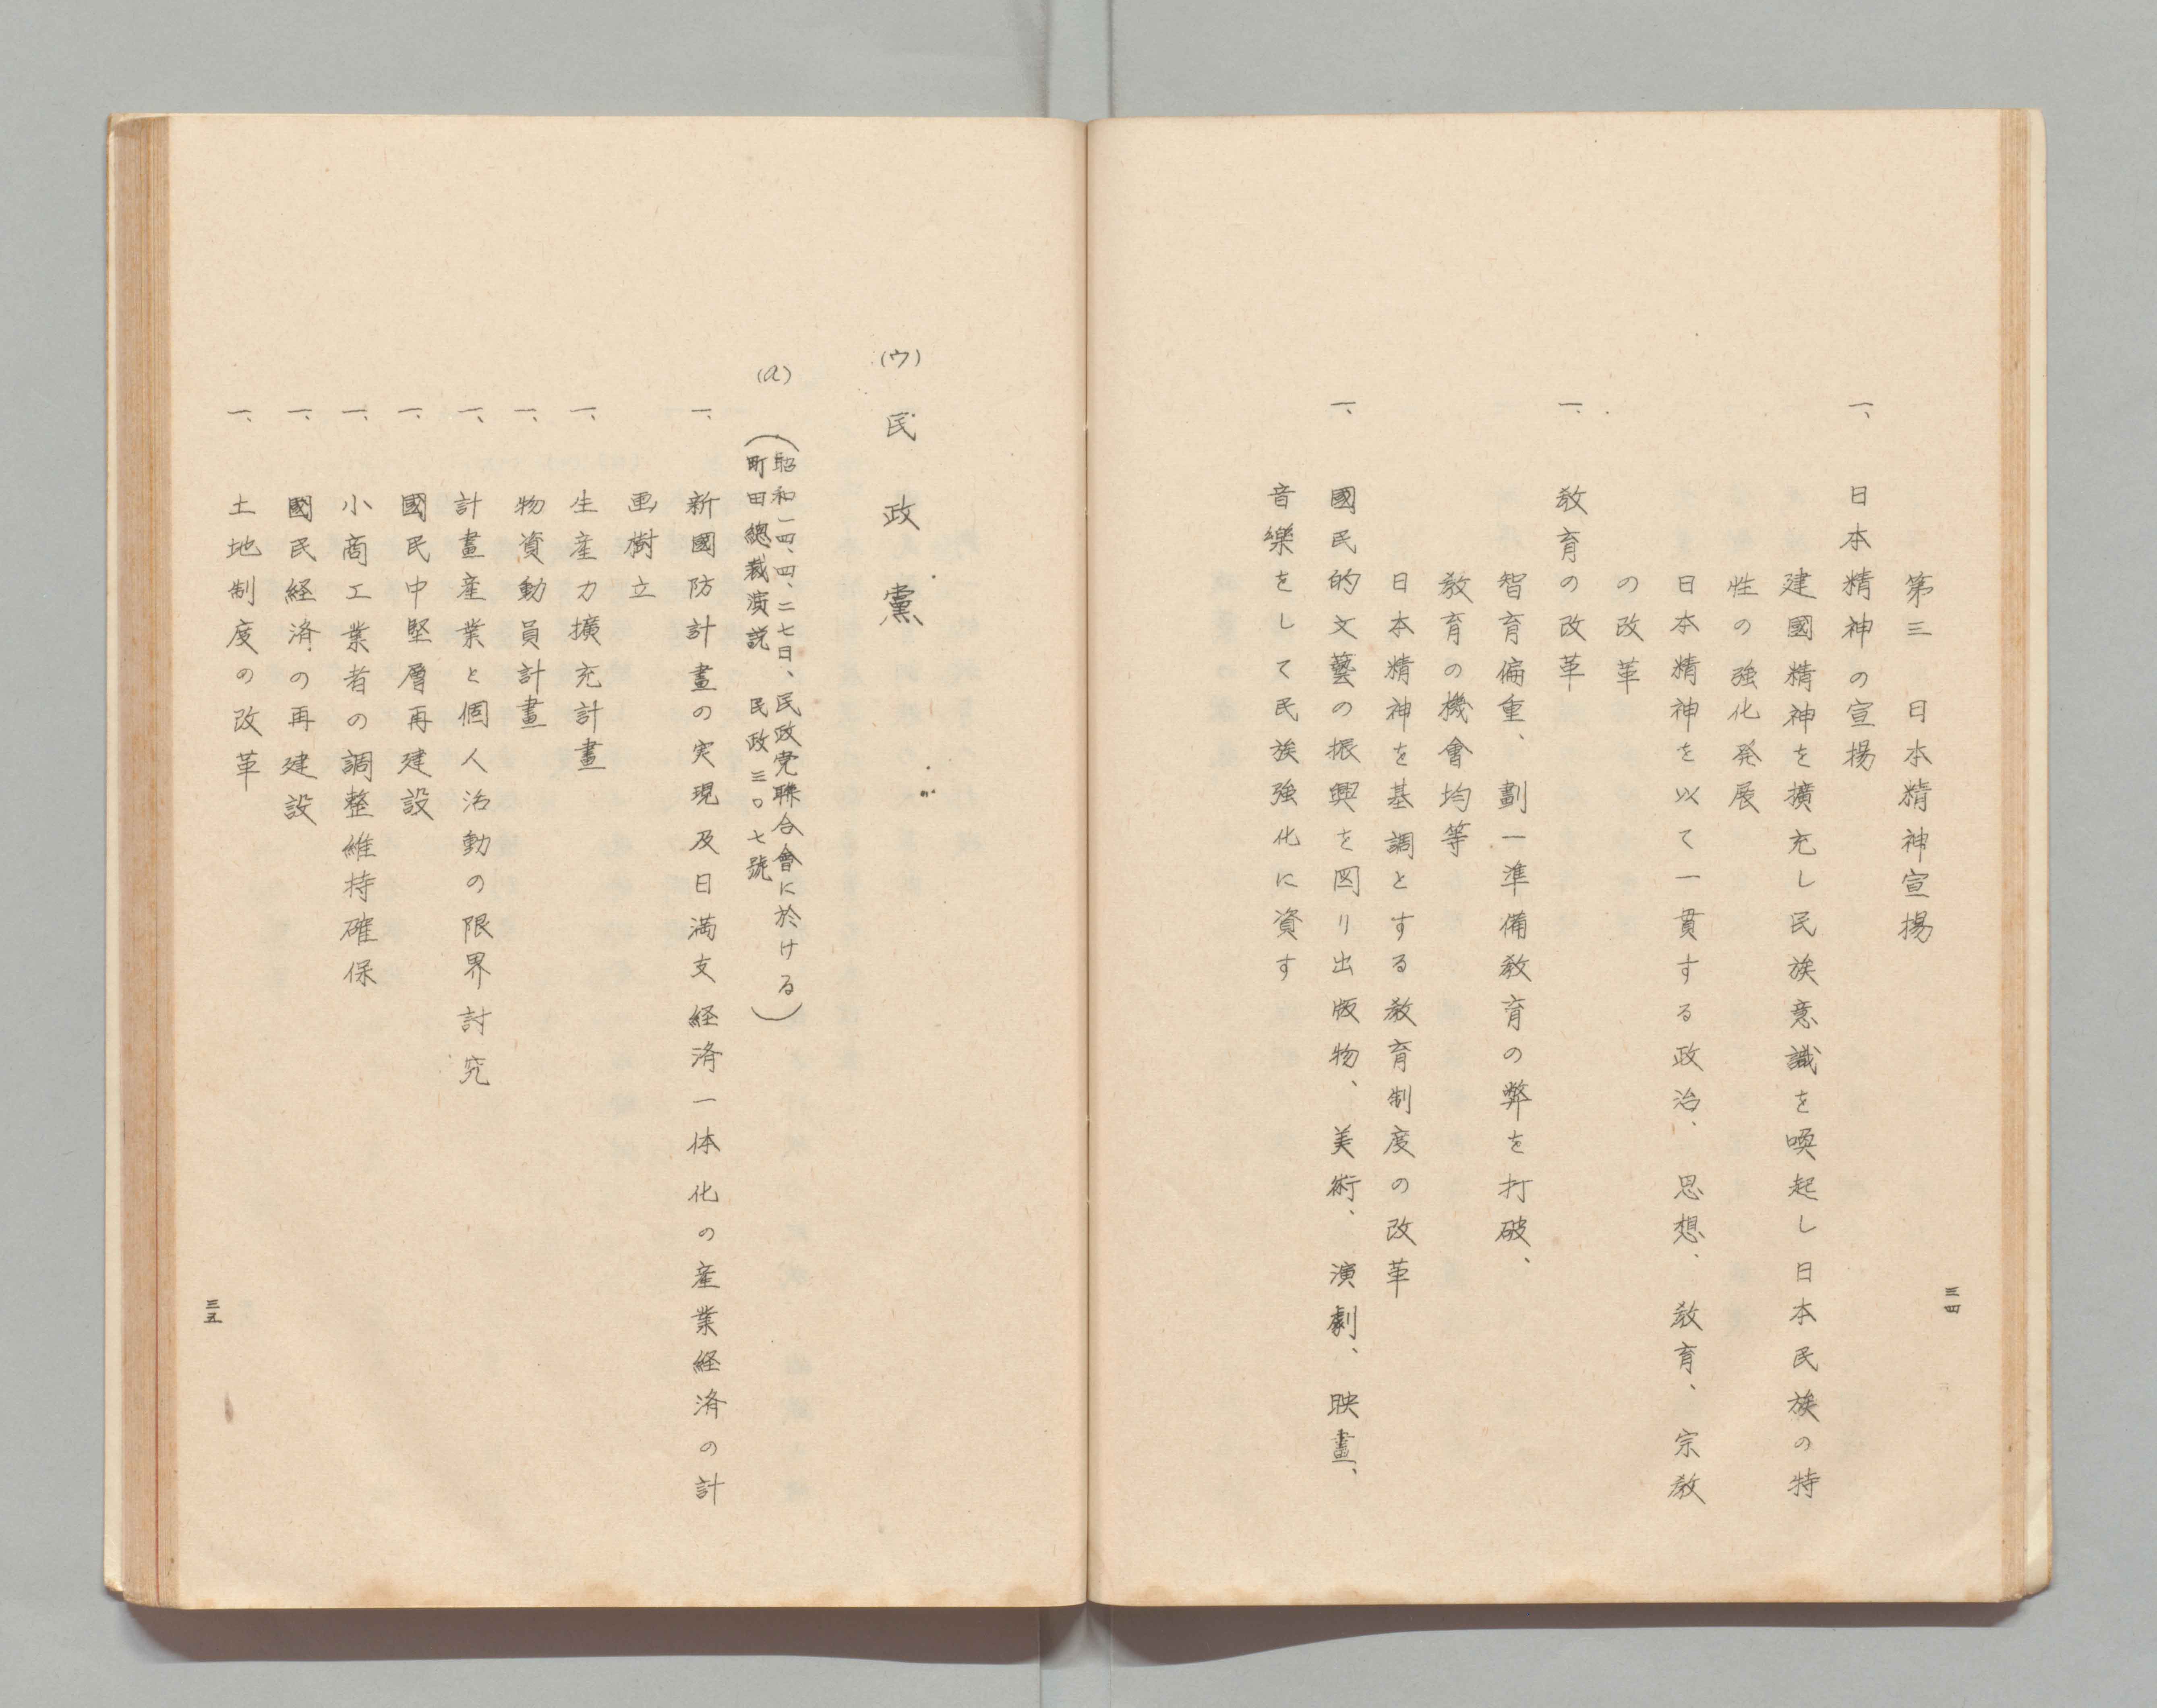 第三　日本精神宣揚
一、日本精神の宣揚
建國精神を擴充し民族意識を喚起し日本民族の特
性の強化発展
日本精神を以て一貫する政治、思想、教育、宗教
の改革
一、教育の改革
智育偏重、劃一準備教育の弊を打破、
教育の機會均等
日本精神を基調とする教育制度の改革
一、國民的文藝の振興を図り出版物、美術、演劇、映畫、
音樂をして民族強化に資す
三四
(ウ)民政黨
(a)(昭和一四、四、二七日、民政党聯合會に於ける
町田總裁演説　民政三〇七號)
一、新國防計畫の実現及日満支経済一体化の産業経済の計
画樹立
一、生産力擴充計畫
一、物資動員計畫
一、計畫産業と個人活動の限界討究
一、國民中堅層再建設
一、小商工業者の調整維持確保
一、國民経済の再建設
一、土地制度の改革
三五